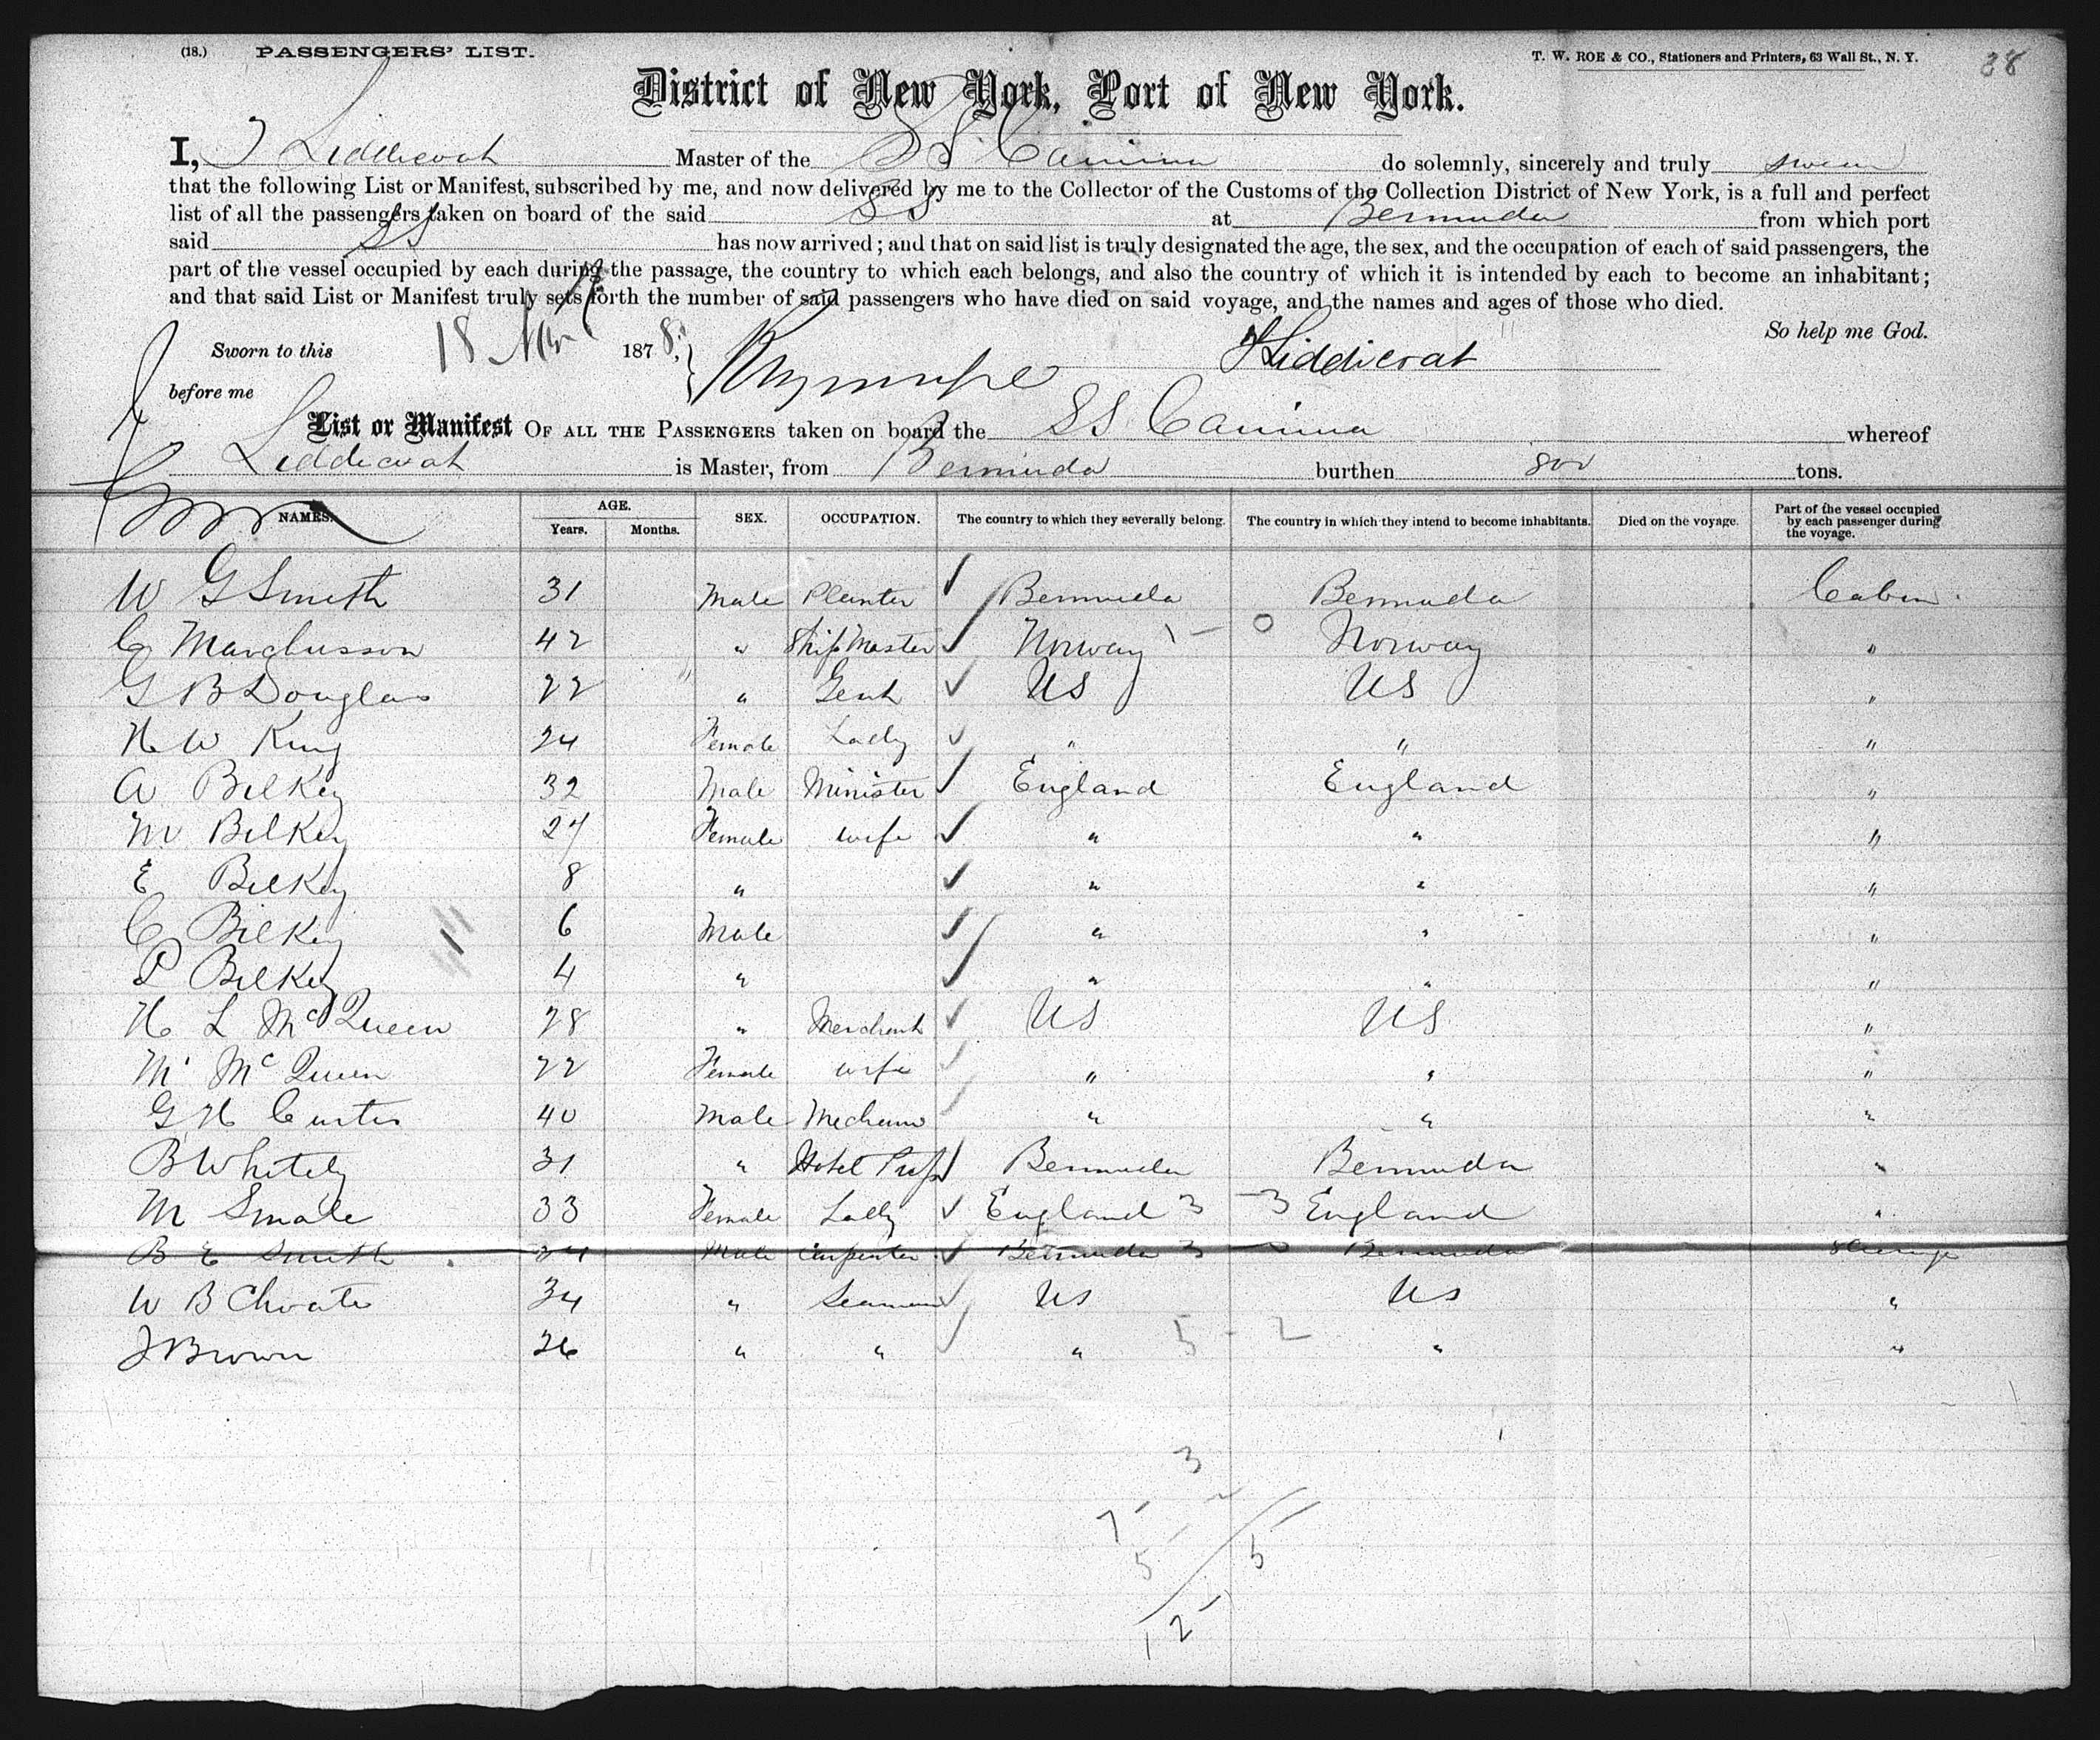 (18.) PASSENGERS' LIST.
T. W. ROE & CO., Stationers and Printers, 63 Wall St., N. Y.
38
District of New York, Port of New York.
I, J Liddicoat Master of the SS Canima do solemnly, sincerely and truly swear
that the following List or Manifest, subscribed by me, and now delivered by me to the Collector of the Customs of the Collection District of New York, is a full and perfect
list of all the passengers taken on board of the said SS at Bermuda from which port
said SS has now arrived; and that on said list is truly designated the age, the sex, and the occupation of each of said passengers, the
part of the vessel occupied by each during the passage, the country to which each belongs, and also the country of which it is intended by each to become an inhabitant;
and that said List or Manifest truly sets forth the number of said passengers who have died on said voyage, and the names and ages of those who died.
So help me God.
Sworn to this 18 1878, Liddicoat
before me
List or Manifest OF ALL THE PASSENGERS taken on board the SS Canima whereof
Liddicoat is Master, from Bermuda burthen 800 tons.
NAMES. AGE. Years. Months. SEX. OCCUPATION. The country to which they severally belong. The country in which they intend to become inhabitants. Died on the voyage. Part of the vessel occupied by each passenger during the voyage.
W G Smith 31 Male Planter Bermuda Bermuda Cabin
C Marchusson 42 " Ship Master Norway Norway "
G B Douglas 22 " Gent US US "
H W King 24 Female Lady " " "
A Bilkey 32 Male Minister England England "
M Bilkey 27 Female wife " " "
E Bilkey 8 " " " "
C Bilkey 6 Male " " "
P Bilkey 4 " " " "
H L McQueen 28 " Merchant US US "
M McQueen 22 Female wife " " "
G H Curtis 40 Male Mechanic " " "
B Whitely 31 " Hotel Prop Bermuda Bermuda "
M Smale 33 Female Lady England 3 3 England "
B E Smith 24 Male Carpenter Bermuda 3 Bermuda Steerage
W B Choate 34 " Seaman US US "
J Brown 26 " " " 5 - 2 " "
3
7
5 5
12